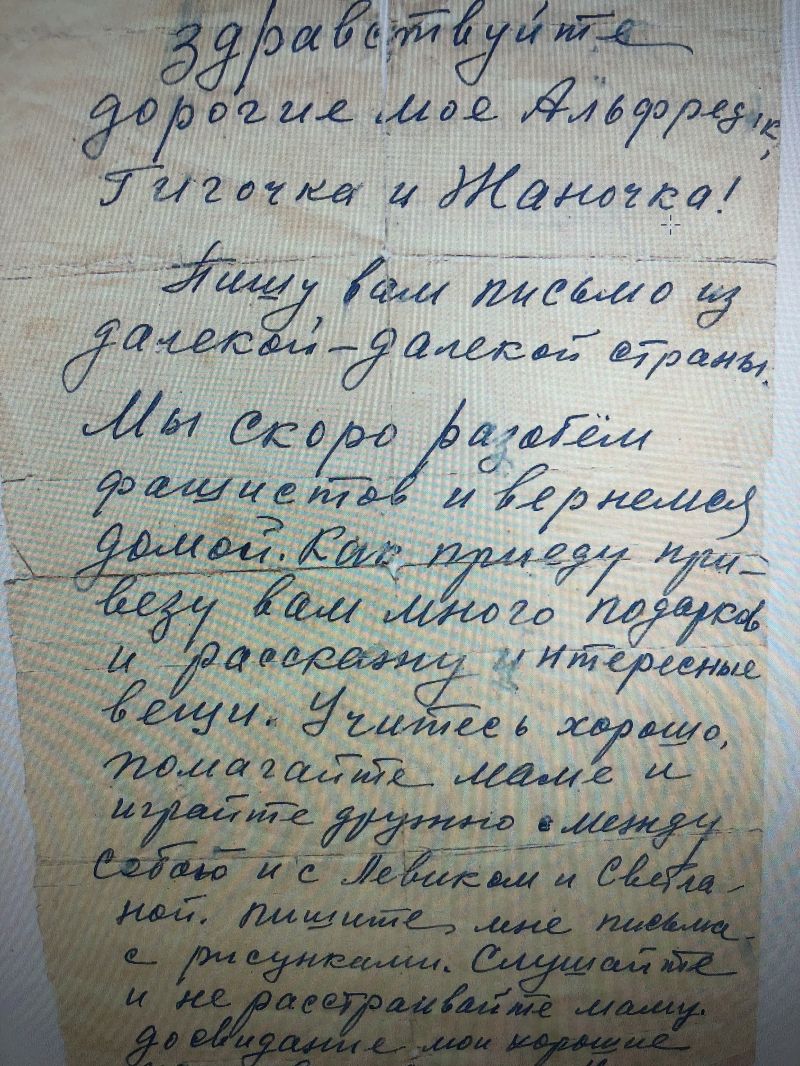 здравствуйте
дорогие мое Альфредик,
Гигочка и Жаночка!
Пишу вам письмо из
далекой-далекой страны.
Мы скоро разобём
фашистов и вернемся
домой. Как приеду при-
везу вам много подарков
и расскажу интересные
вещи. Учитесь хорошо,
помагайте маме и
играйте дружно между
собою и с Левиком и Светла-
ной. пишите мне письма
с рисунками. Слушайте
и не расстраивайте маму.
до свидание мои хорошие